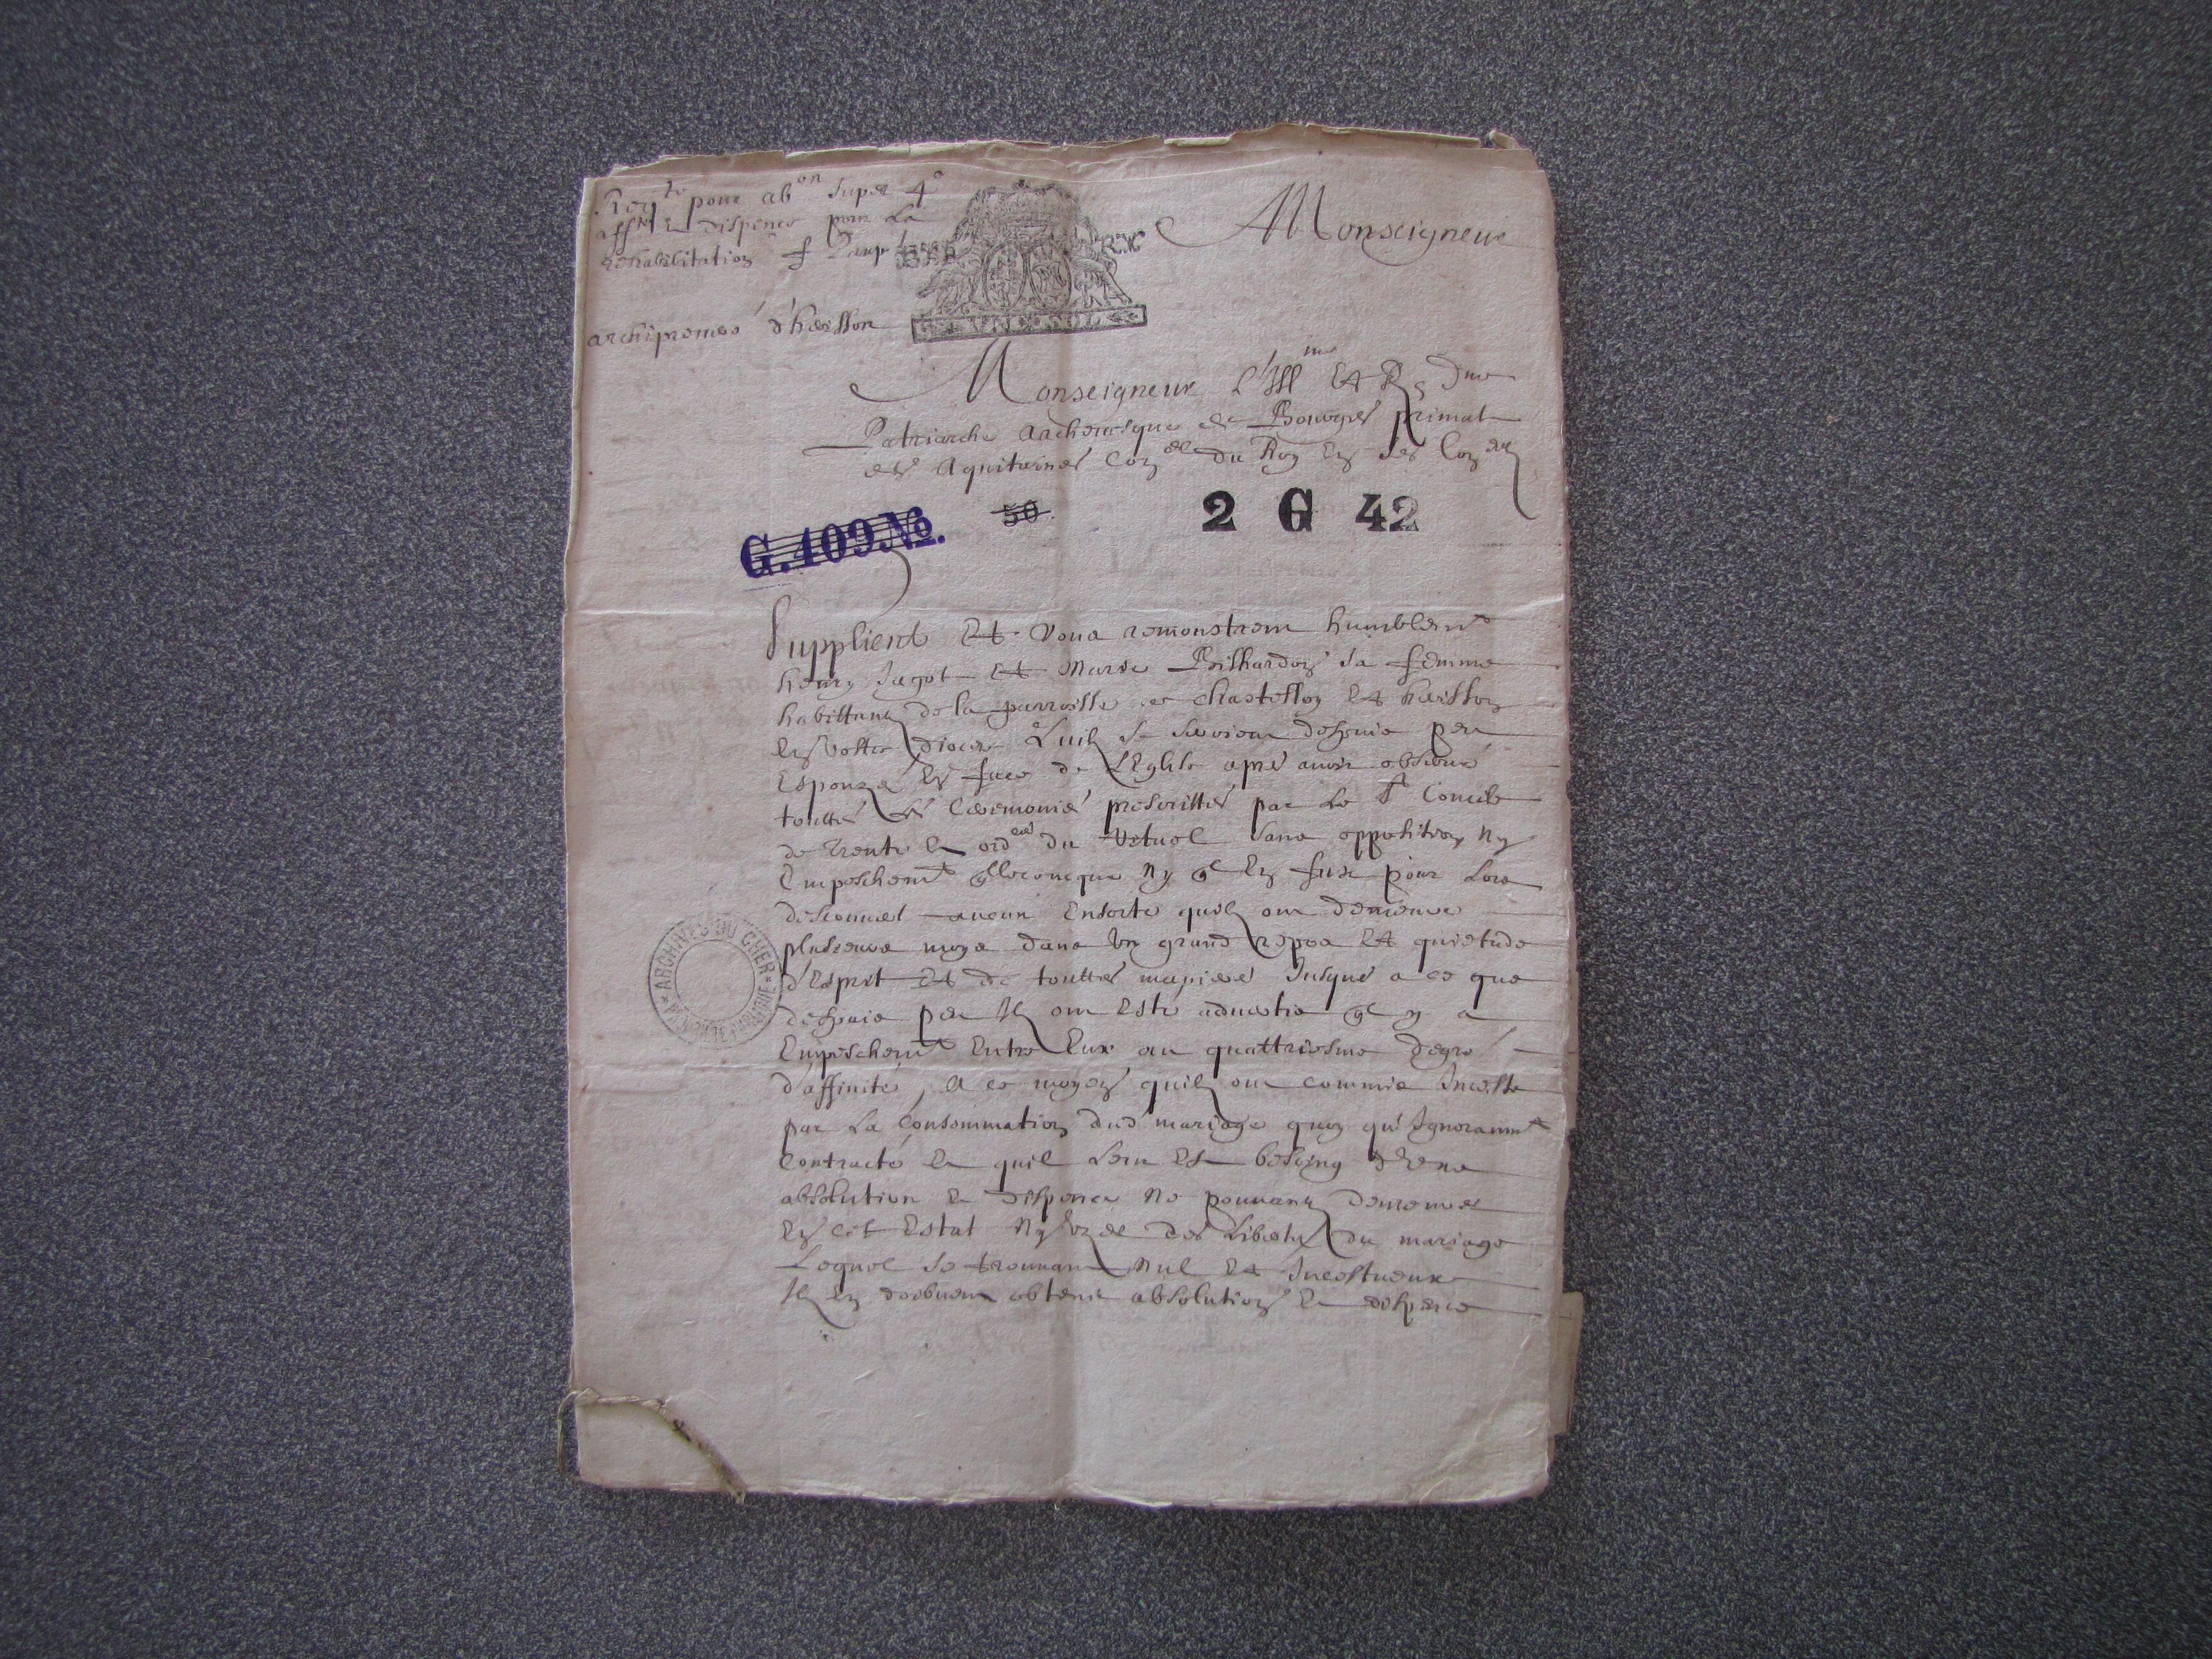 Req.te pour ab.on super 4°
aff. & dispence pour la
rehabilitation
archiprestré d'herisson
UN SOL
A Monseigneur
Monseigneur L'Ill.me Et R.
Patriarche Archevesque de Bourges primat
des Aquitaines Con.er du Roy En ses Con.
G.409.No.
50
2 G 42
Supplient Et vous remonstrent humblem.t
henry Jagot Et Marie Bilhardon sa femme
habittans de la parroisse de Chastelloy Et herisson
En vostre diocese quilz se seroient despuis peu
Espouzé En face de L'Eglise apres avoir observé
touttes les Ceremonies prescrittes par Le St Concile
de Trente & ord.res du Rituel sans oppositon ny
Empeschem.t quelconcque ny quil En fust pour Lors
descouvert aucun Ensorte quilz ont demeuré
plusieurs moys dans Un grand repos Et quietude
d'Esprit Et de touttes manieres Jusques a ce que
despuis peu Ilz ont Esté advertis quil y a
Empeschem.t Entre Eux au quattriesme degré
d'affinité, & ce moyen quilz ont commis Inceste
par La Consommation dud mariage quoy qu'Ignoramm.t
Contracté & quil Leur Est besoing d'Une
absolution & dispence Ne pouvans demeurer
En cet Estat Ny User des Libertez du mariage
Lequel se trouvant Nul Et Incestueux
Ilz En doibvent obtenir absolution & dispence
★ ARCHIVES DU CHER ★